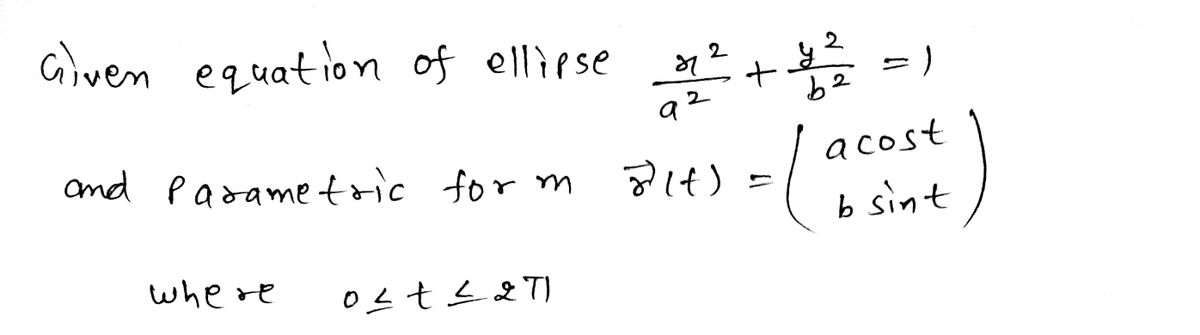 Given equation of ellipse x²/a² + y²/b² = 1
and Parametric form r⃗(t) = (a cost
b sint)
where 0 ≤ t ≤ 2π